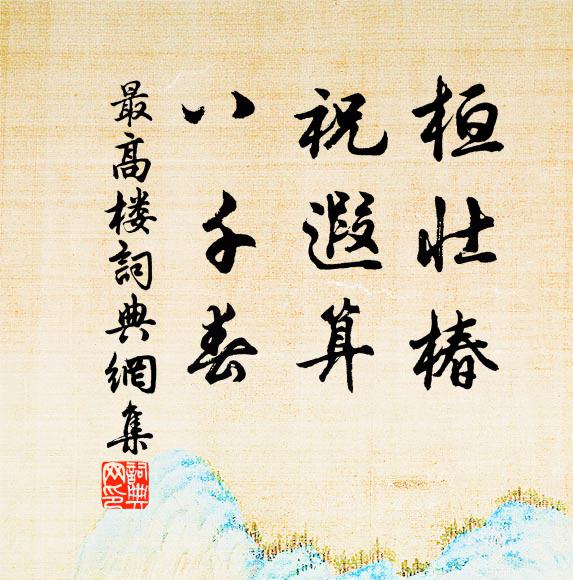 桓壮椿
祝遐算
八千春
最高楼詞典網集
詞典網印